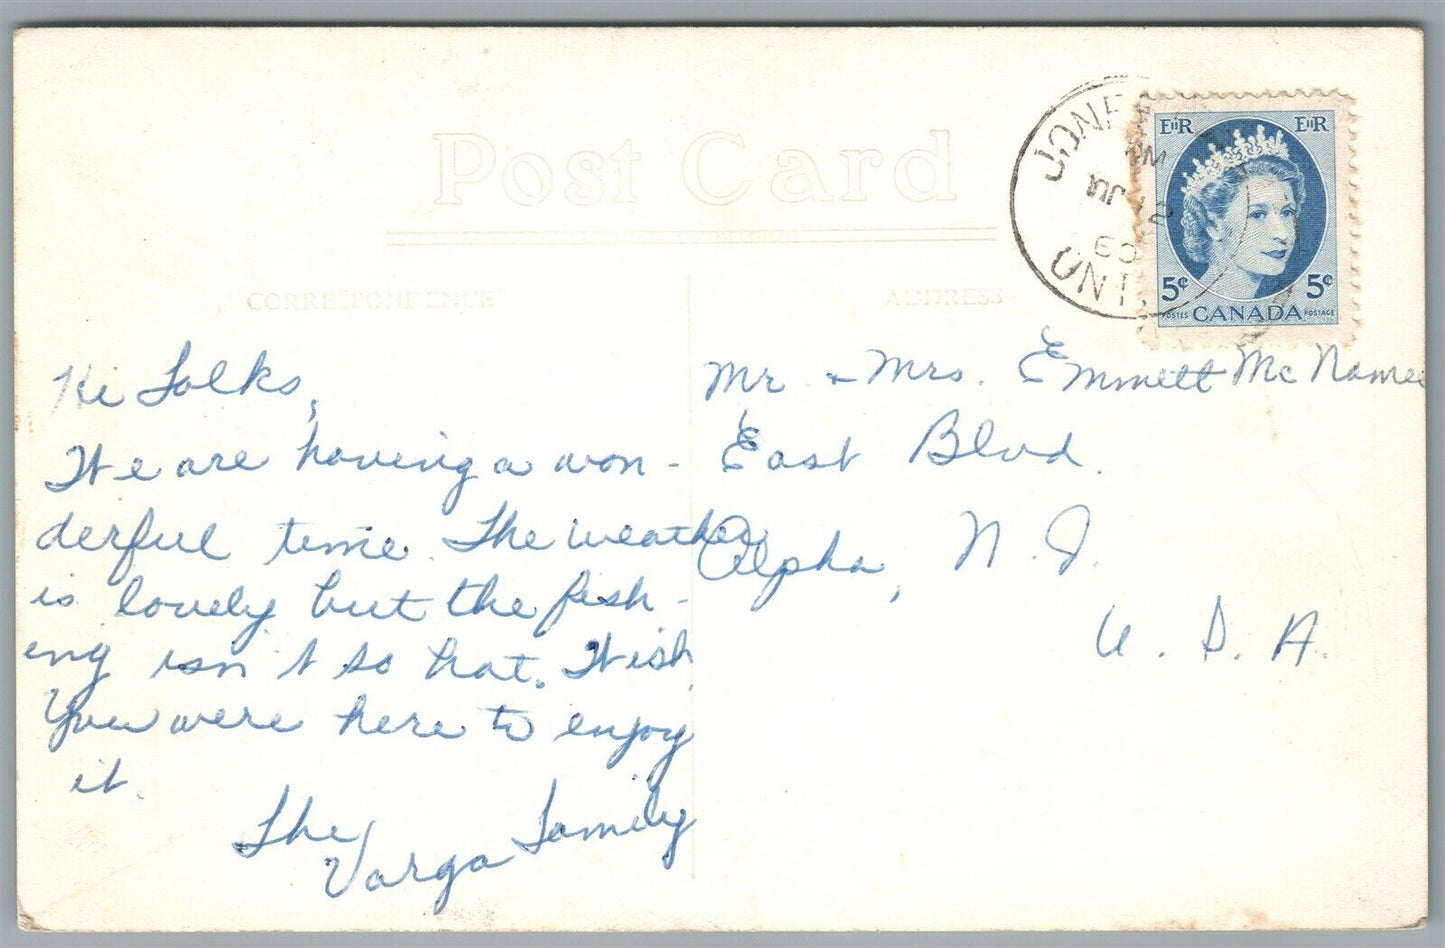 Post Card
CORRESPONDENCE
ADDRESS
EIIR EIIR
5¢ 5¢
POSTES CANADA POSTAGE
AM
JUL
21
ONT
Hi Folks,
We are having a won-
derful time. The weather
is lovely but the fish-
ing isn't so hot. Wish
you were here to enjoy
it.
The
Varga Family
Mr. & Mrs. Emmett McNamee
East Blvd.
Alpha, N.J.
U.S.A.